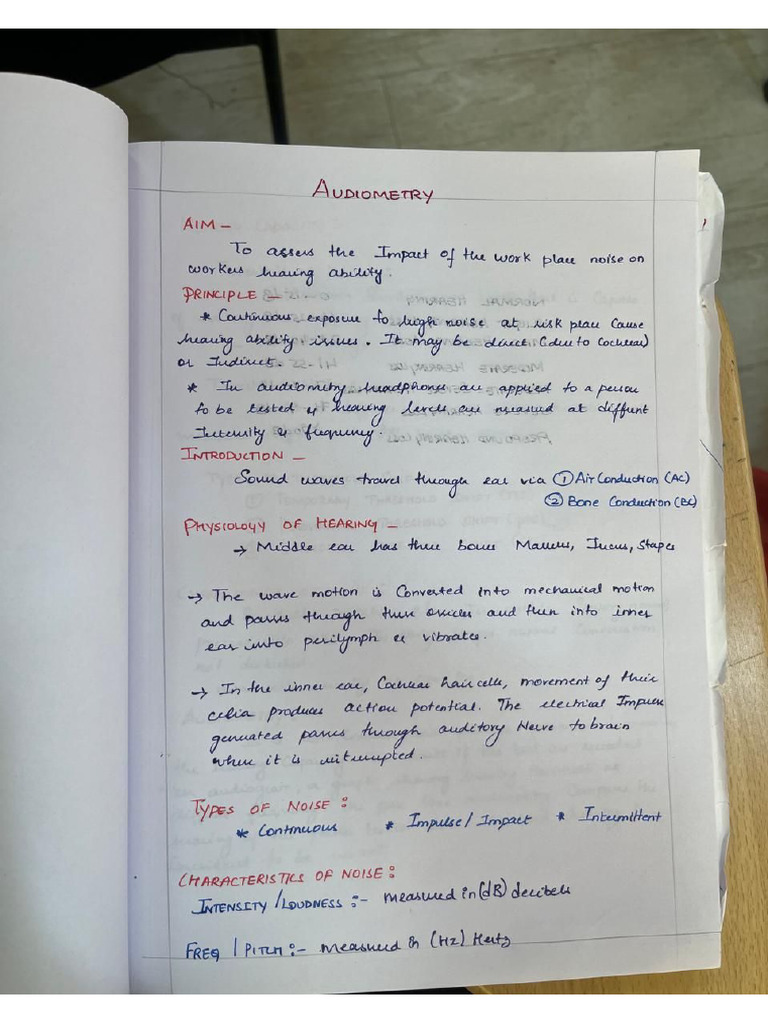 AUDIOMETRY
AIM -
To assess the Impact of the work place noise on
workers hearing ability.
PRINCIPLE -
* Continuous exposure to high noise at risk place cause
hearing ability issues. It may be direct (due to cochlear)
or Indirect.
* In audiometry headphones are applied to a person
to be tested & hearing levels are measured at diffrent
Intensity & frequency.
INTRODUCTION -
Sound waves travel through ear via ① Air Conduction (AC)
② Bone Conduction (BC)
PHYSIOLOGY OF HEARING -
→ Middle ear has three bones Malleus, Incus, Stapes
→ The wave motion is Converted into mechanical motion
and passes through three ossicles and then into inner
ear into perilymph & vibrates.
→ In the inner ear, Cochlear hair cells, movement of their
celia produces action potential. The electrical Impulse
generated passes through auditory Nerve to brain
where it is interrupted.
TYPES OF NOISE :
* Continuous * Impulse / Impact * Intermittent
CHARACTERISTICS OF NOISE :
INTENSITY / LOUDNESS :- measured in (dB) decibels
FREQ / PITCH :- measured in (Hz) Hertz